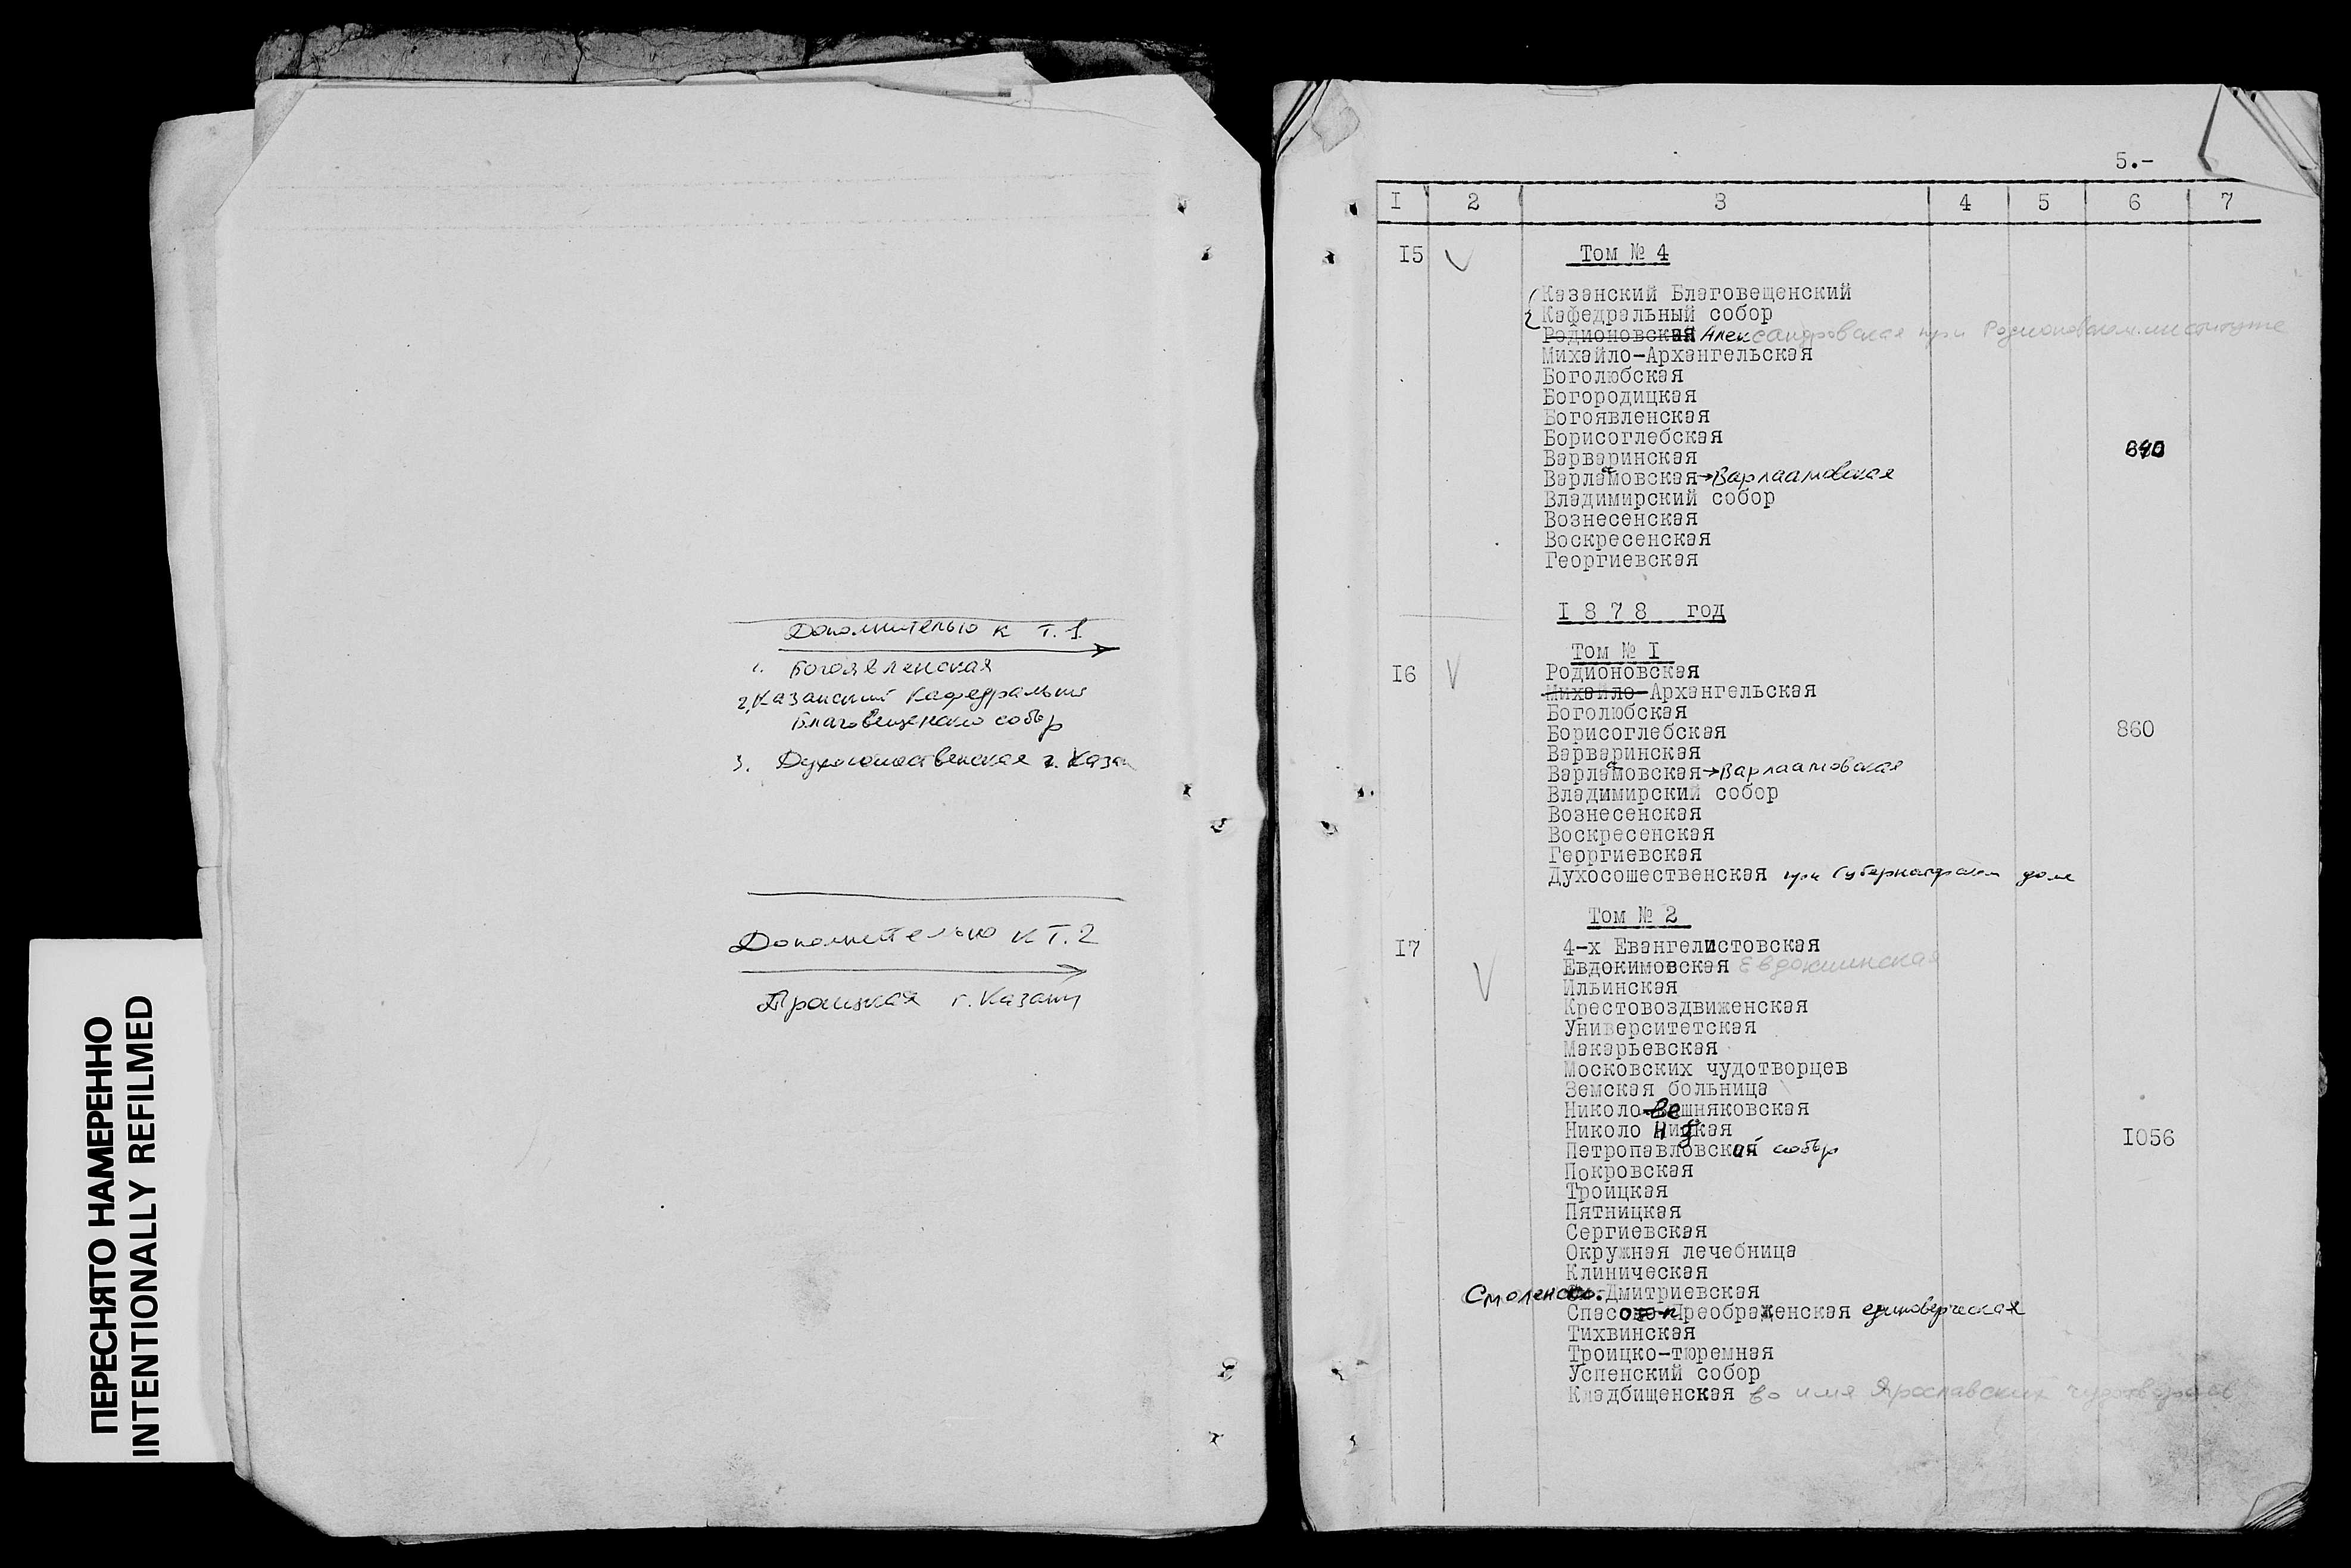 ПЕРЕСНЯТО НАМЕРЕННО
INTENTIONALLY REFILMED
Дополнительно к т. 1
1. Богоявленская
2. Казанский Кафедральный
Благовещенский собор
3. Духосошественская г. Казан
Дополнительно к Т. 2
Троицкая г. Казани
5.-
I 2 3 4 5 6 7
I5 V Том № 4
Казанский Благовещенский
Кафедральный собор
Родионовская Александровская при Родионовском институте
Михайло-Архангельская
Боголюбская
Богородицкая
Богоявленская
Борисоглебская
Варваринская
Варлаамовская→Варлаамовская
Владимирский собор
Вознесенская
Воскресенская
Георгиевская
I 8 7 8 год
Том № I
I6 V Родионовская
Михайло-Архангельская
Боголюбская
Борисоглебская 860
Варваринская
Варлаамовская→Варлаамовская
Владимирский собор
Вознесенская
Воскресенская
Георгиевская
Духосошественская при Губернаторском доме
Том № 2
I7 V 4-х Евангелистовская
Евдокимовская Евдокиинская
Ильинская
Крестовоздвиженская
Университетская
Макарьевская
Московских чудотворцев
Земская больница
Николо-Вешняковская
Николо Низкая
Петропавловский собор I056
Покровская
Троицкая
Пятницкая
Сергиевская
Окружная лечебница
Клиническая
Смоленско-Дмитриевская
Спасо-Преображенская единоверческая
Тихвинская
Троицко-тюремная
Успенский собор
Кладбищенская во имя Ярославских чудотворцев